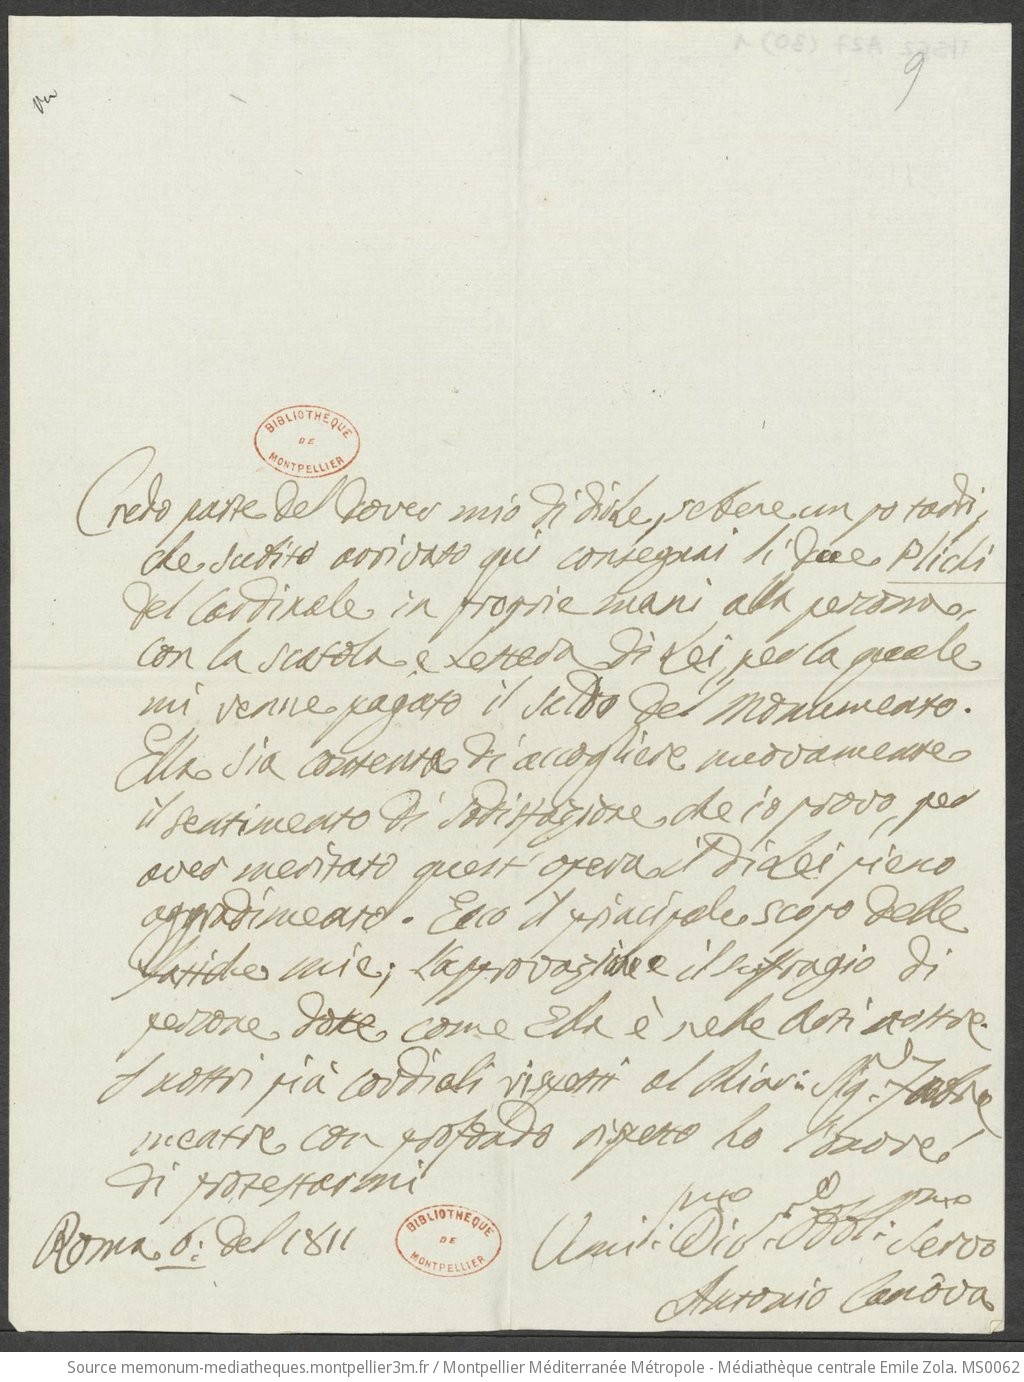 9
BIBLIOTHÈQUE
DE
MONTPELLIER
Credo parte del dover mio di dirle, sebene un po tardi,
che subito arrivato qui consegnai li due Plichi
del Cardinale in proprie mani alla persona,
con la scatola e Lettera di Lei, per la quale
mi venne pagato il saldo del Monumento.
Ella sia contenta di accogliere nuovamente
il sentimento di sodisfazione che io provo, per
aver meritato quest' opera il di Lei pieno
aggradimento. Ecco il principale scopo delle
fatiche mie; L'approvazione e il suffragio di
persone dotte come Ella è nelle Arti nostre.
I nostri più cordiali rispetti al Chiar: Sig.r Fabre
mentre con profondo rispetto ho l'onore
di protestarmi
Roma 6: del 1811
BIBLIOTHÈQUE
DE
MONTPELLIER
Umil:mo Div: Obbl:mo Servo
Antonio Canôva
Source memonum-mediatheques.montpellier3m.fr / Montpellier Méditerranée Métropole - Médiathèque centrale Emile Zola. MS0062